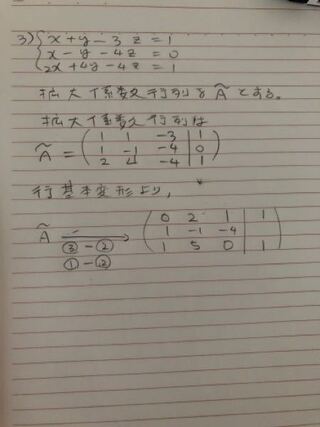 3) { x + y - 3z = 1
x - y - 4z = 0
2x + 4y - 4z = 1
拡大係数行列を Ã とする。
拡大係数行列は
1 1 -3 | 1
Ã = ( 1 -1 -4 | 0 )
2 4 -4 | 1
行基本変形より,
0 2 1 | 1
Ã → ( 1 -1 -4 | )
③-② 1 5 0 | 1
①-②